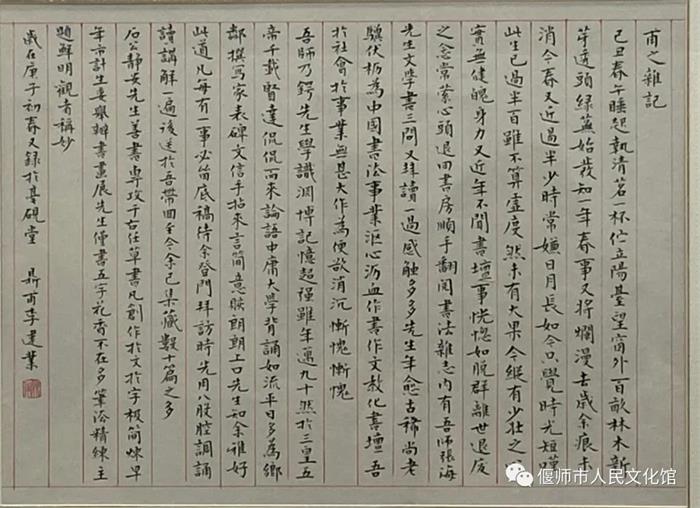 甫之雜記
己丑春午睡起執清茗一杯佇立陽臺望窗外百畝林木新
芽透頭綠蕪始發知一年春事又將爛漫去歲余痕未
消今春又近過半少時常嫌日月長如今只覺時光短嘆
此生已過半百雖不算虛度然未有大果今縱有少壯之
實無健魄身力又近年不聞書壇事恍惚如脫群離世退
之念常縈心頭退回書房順手翻閱書法雜志內有吾師張海
先生文學書三問又拜讀一過感觸多多先生年愈古稀尚老
驥伏櫪為中國書法事業漚心沥血作書作文教化書壇吾
於社會於事業無甚大作為便欲消沉慚愧慚愧
吾師乃鍔先生學識淵博記憶超強雖年邁九十然於三皇五
帝千載賢達侃侃而來論語中庸大學背誦如流平日多為鄉
鄰撰寫家表碑文信手拈來言簡意賅朗朗上口先生知余雅好
此道凡每有一事必留底稿待余登門拜訪時先用八股腔調誦
讀講解一遍後送於吾帶回至今余已集藏數十篇之多
石公靜安先生善書專攻于右任草書凡創作於文於字極簡煉早
年市計生委舉辦書畫展先生僅書五字花香不在多筆法精練主
題鮮明觀者稱妙
歲在庚子初春又錄於墓硯堂 鼎甫李建業
偃师市人民文化馆